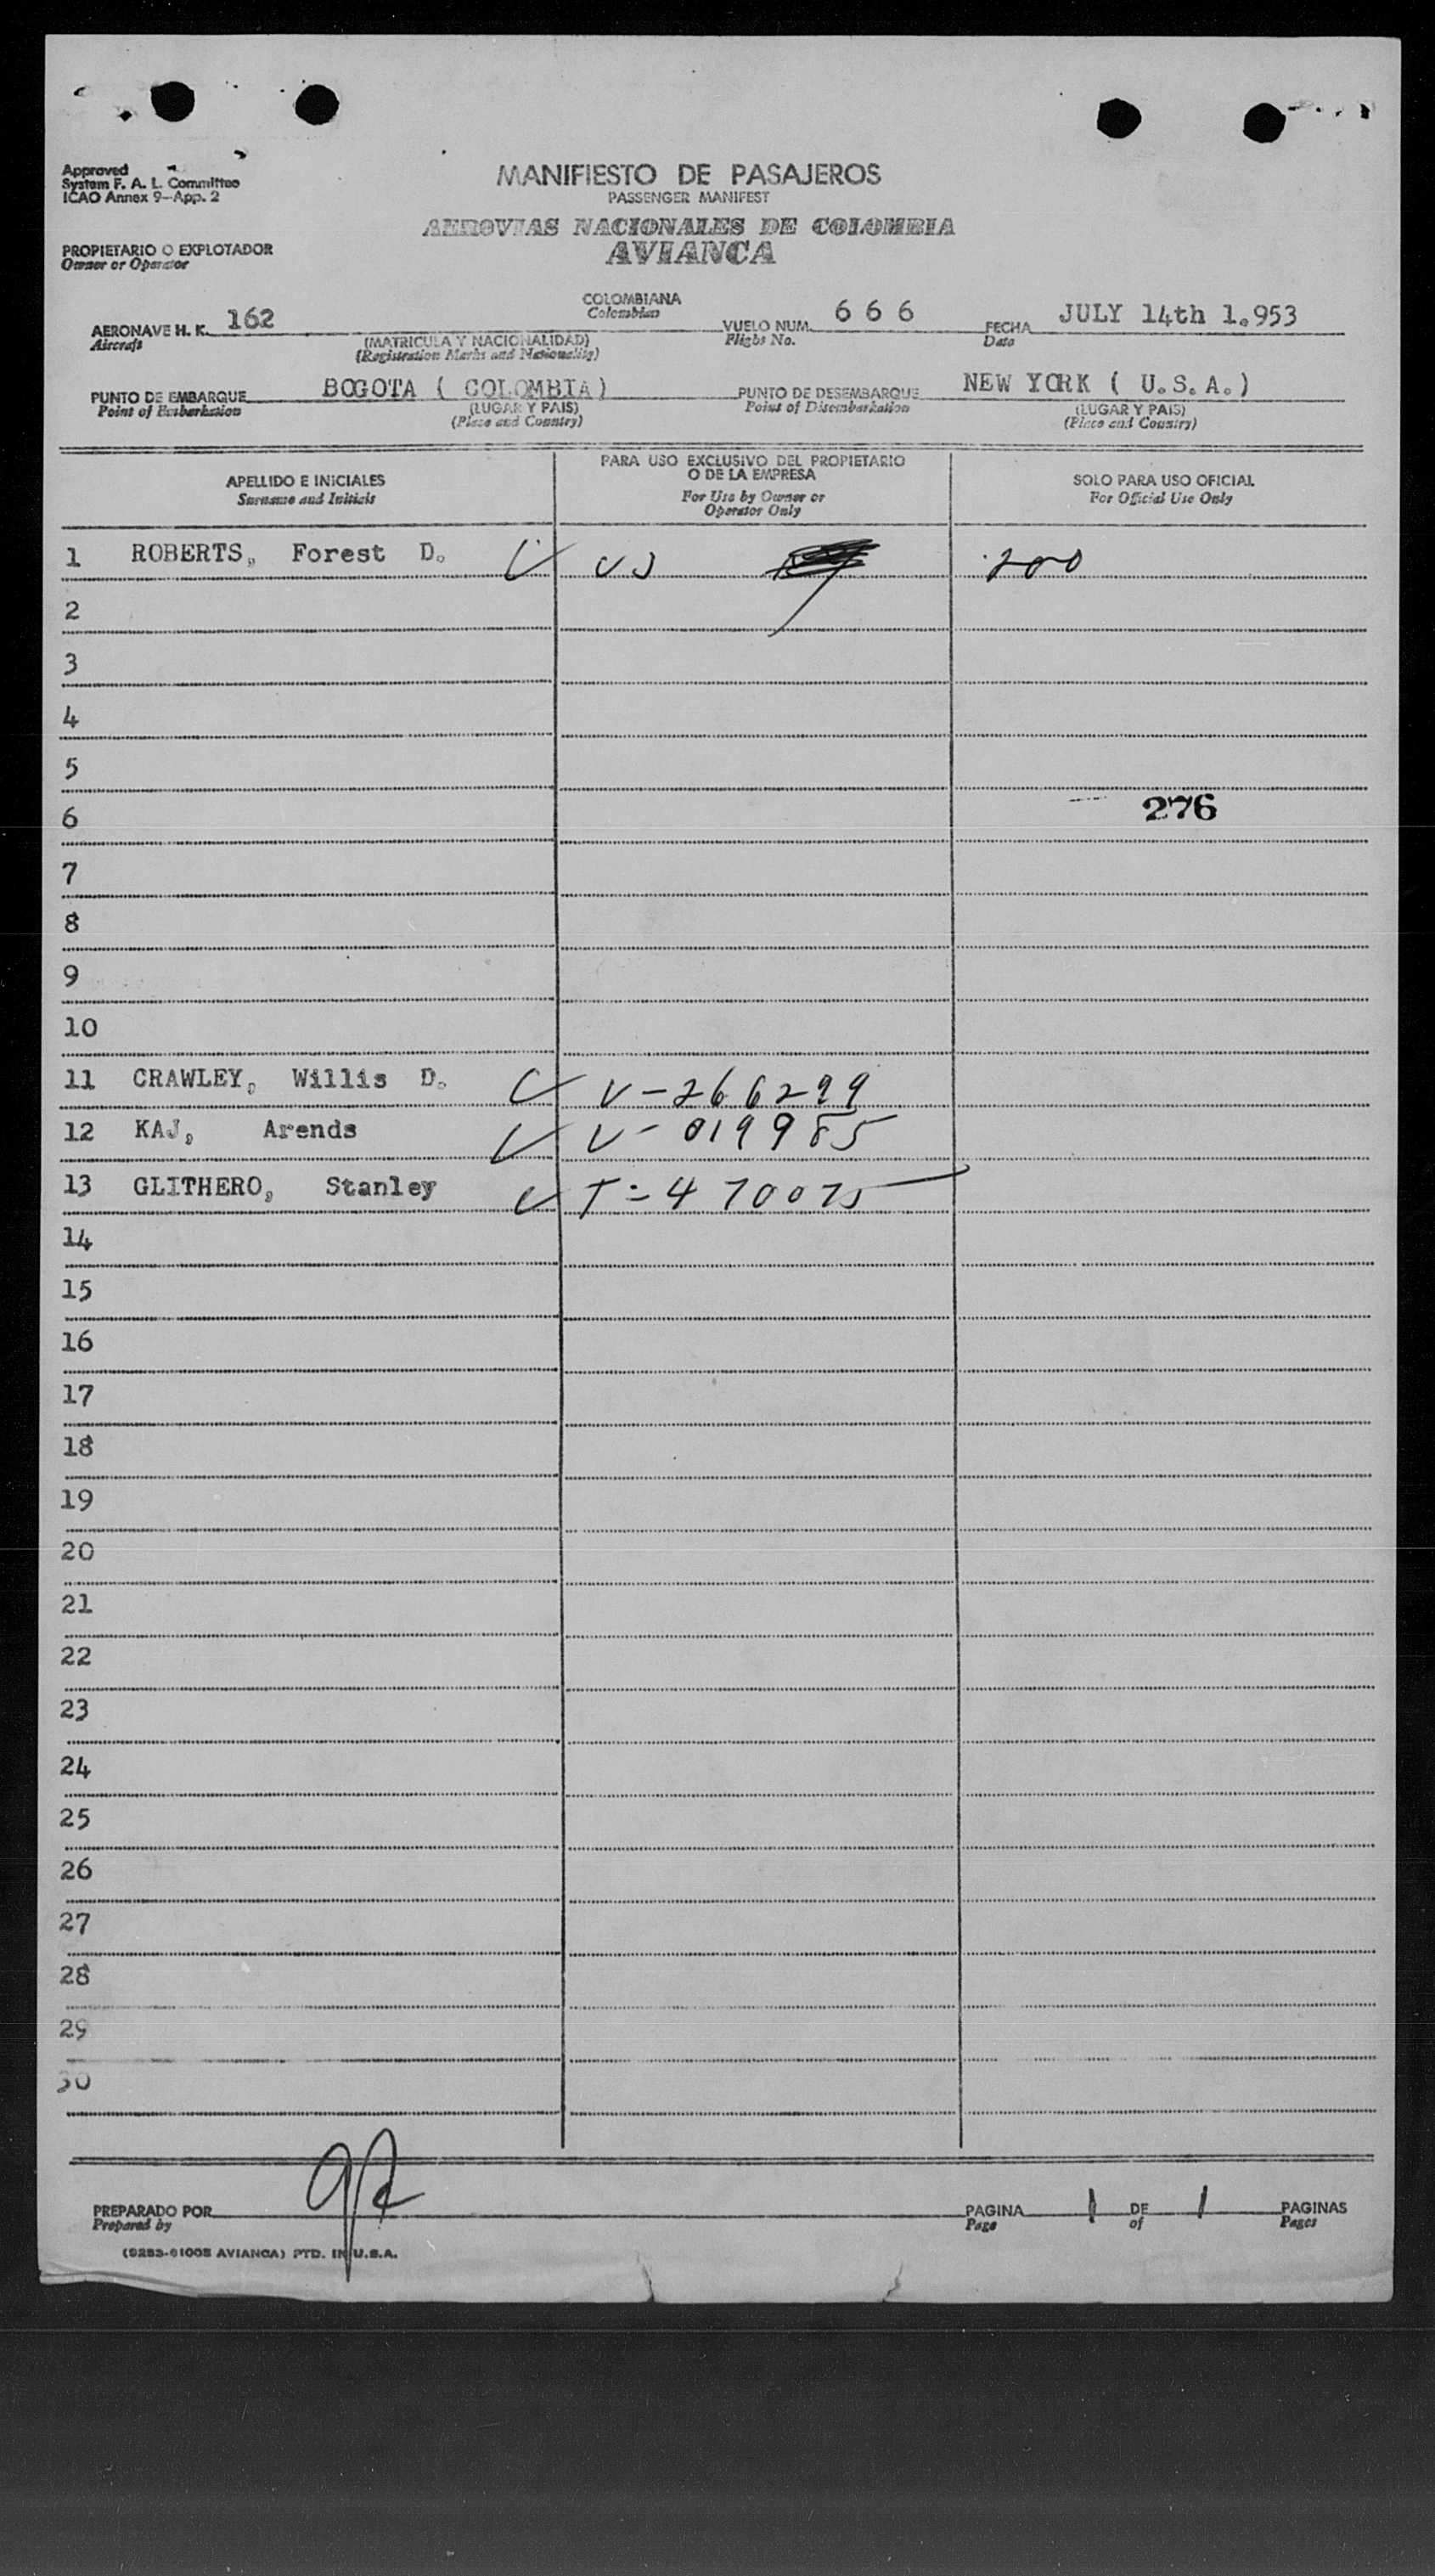 Approved
System F. A. L. Committee
ICAO Annex 9-App. 2
MANIFIESTO DE PASAJEROS
PASSENGER MANIFEST
AEROVIAS NACIONALES DE COLOMBIA
AVIANCA
PROPIETARIO O EXPLOTADOR
Owner or Operator
COLOMBIANA
Colombian
AERONAVE H. K. 162 VUELO NUM. 6 6 6 FECHA JULY 14th 1.953
Aircraft (MATRICULA Y NACIONALIDAD) Flight No. Date
(Registration Marks and Nationality)
PUNTO DE EMBARQUE BOGOTA ( COLOMBIA) PUNTO DE DESEMBARQUE NEW YORK ( U.S.A.)
Point of Embarkation (LUGAR Y PAIS) Point of Disembarkation (LUGAR Y PAIS)
(Place and Country) (Place and Country)
APELLIDO E INICIALES
Surname and Initials
PARA USO EXCLUSIVO DEL PROPIETARIO
O DE LA EMPRESA
For Use by Owner or
Operator Only
SOLO PARA USO OFICIAL
For Official Use Only
1 ROBERTS, Forest D. US 200
2
3
4
5
6 276
7
8
9
10
11 CRAWLEY, Willis D. V-266299
12 KAJ, Arends V-019985
13 GLITHERO, Stanley T-470075
14
15
16
17
18
19
20
21
22
23
24
25
26
27
28
29
30
PREPARADO POR PAGINA 1 DE 1 PAGINAS
Prepared by Page of Pages
AVIANCA) PTD. IN U.S.A.